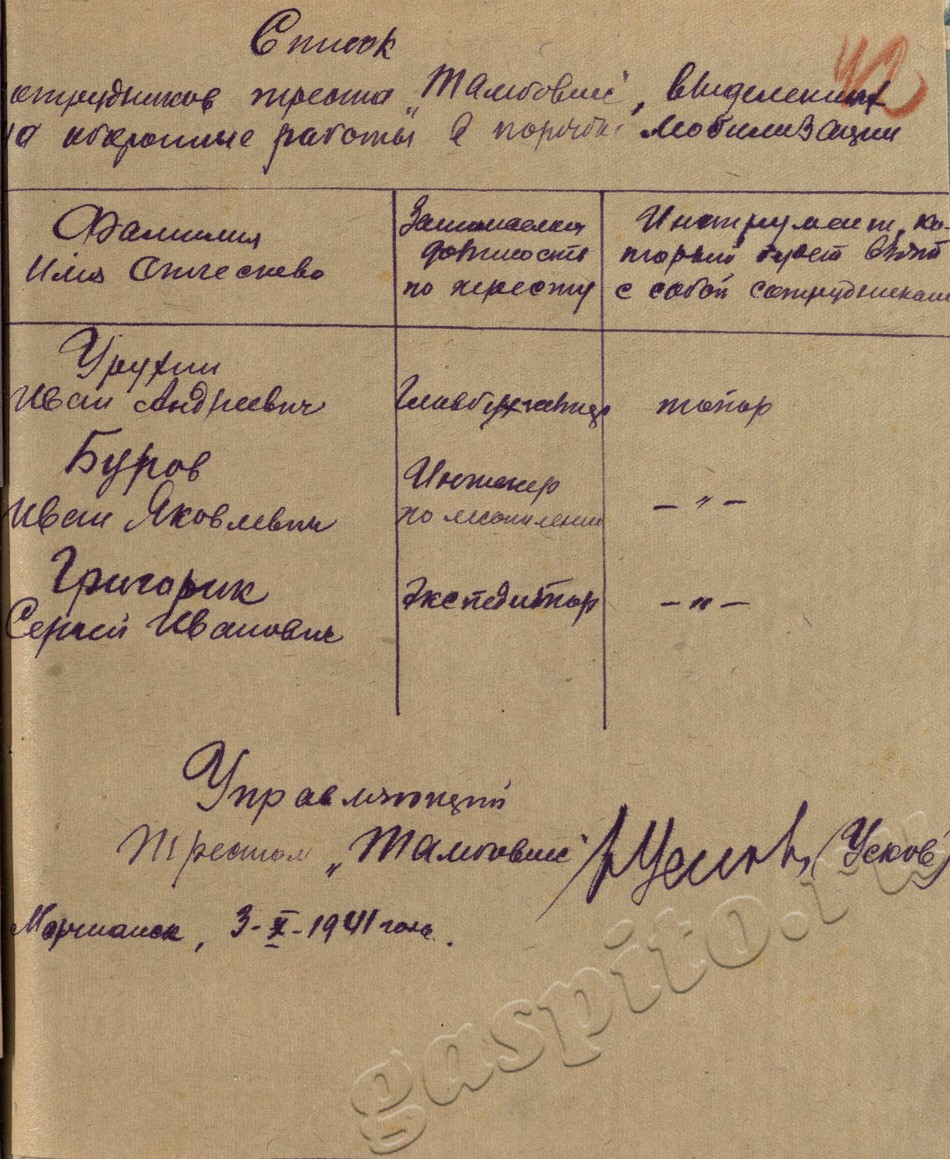 Список
42
сотрудников треста „Тамбовлес", выделенных
на оборонные работы в порядке мобилизации
Фамилия
Имя Отчество
Занимаемая
должность
по тресту
Инструмент, ко-
торый будет взят
с собой сотрудниками
Урухин
Иван Андреевич
Главбухгалтер
топор
Буров
Иван Яковлевич
Инженер
по лесопилению
— " —
Григорик
Сергей Иванович
Экспедитор
— " —
Управляющий
трестом „Тамбовлес"
(Усков)
Моршанск, 3-X-1941 года.
gaspito.ru